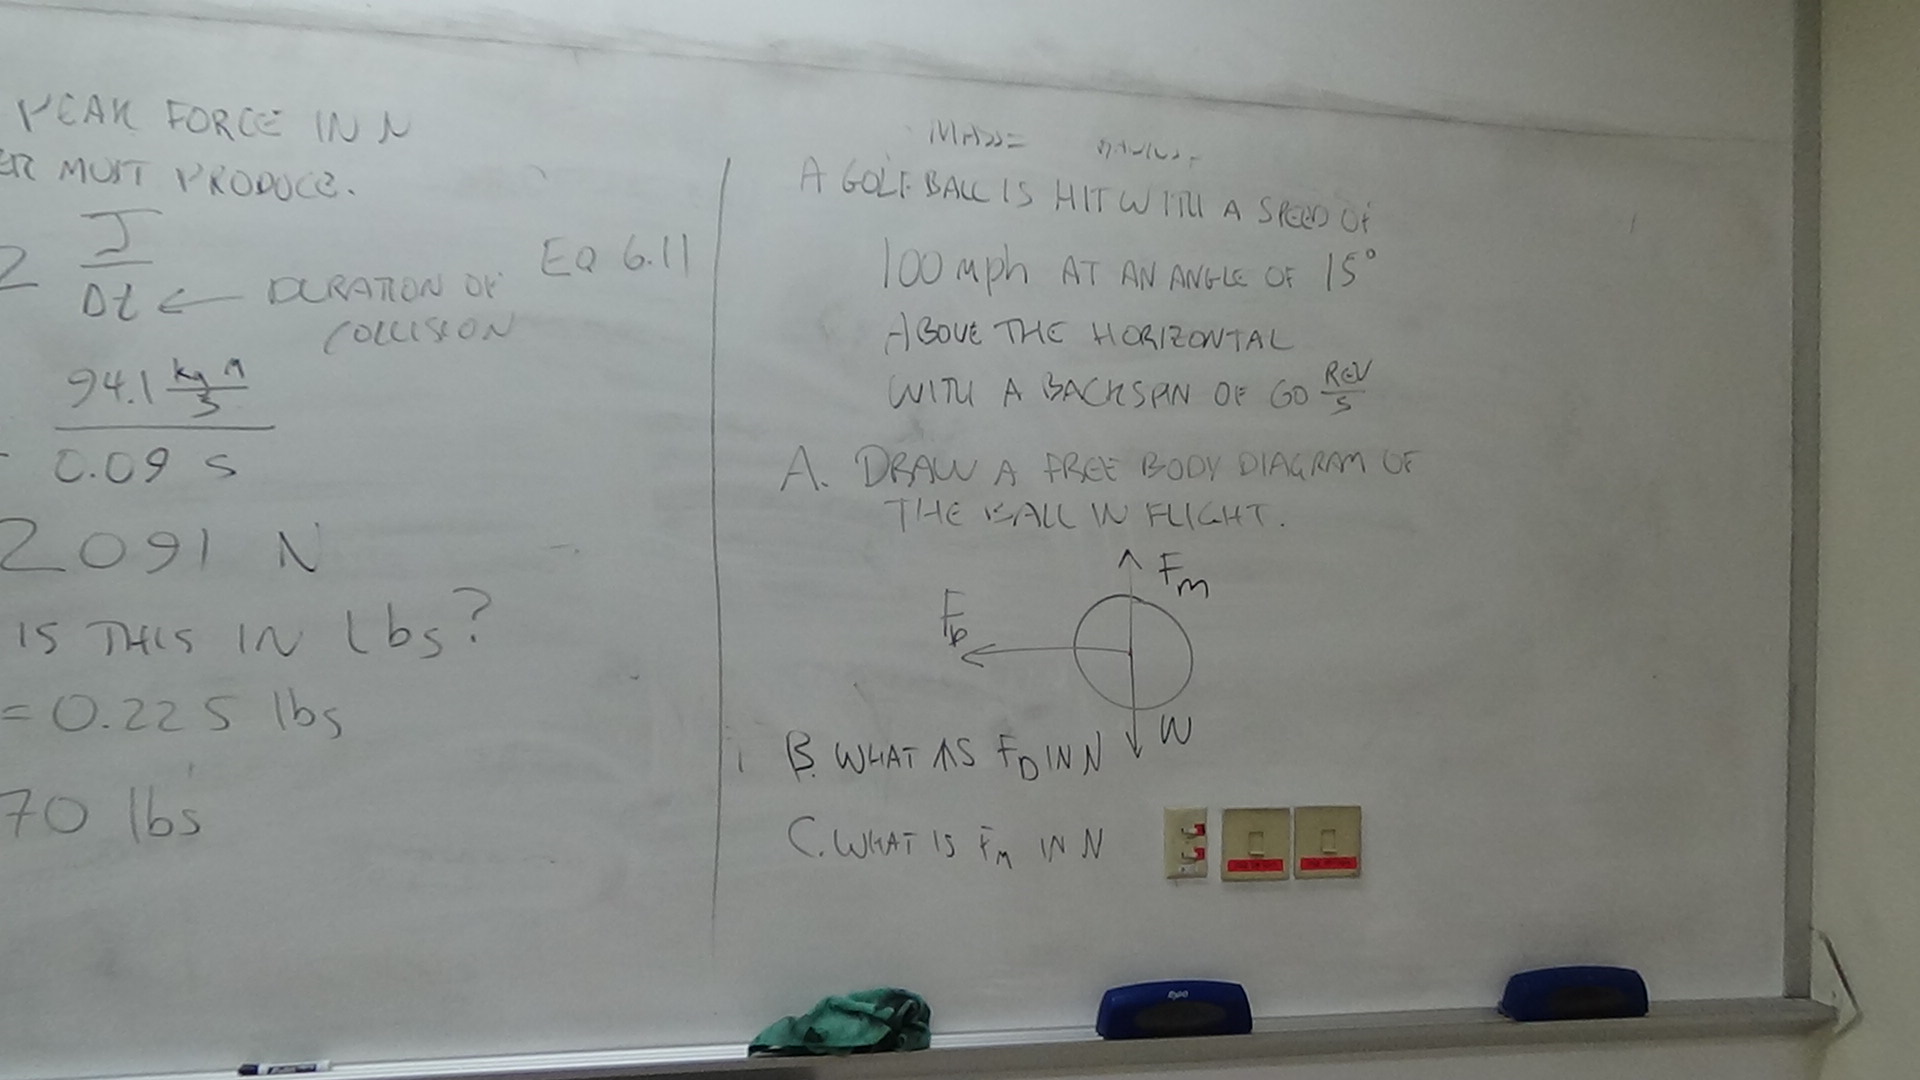 PEAK FORCE IN N
ER MUST PRODUCE.
2 J
Δt ← DURATION OF
COLLISION
EQ 6.11
94.1 kg m
s
0.09 s
2091 N
IS THIS IN lbs?
= 0.225 lbs
70 lbs
MASS=
A GOLF BALL IS HIT WITH A SPEED OF
100 mph AT AN ANGLE OF 15°
ABOVE THE HORIZONTAL
WITH A BACKSPIN OF 60 REV
S
A. DRAW A FREE BODY DIAGRAM OF
THE BALL IN FLIGHT.
Fm
FD
W
B. WHAT IS FD IN N
C. WHAT IS FM IN N
expo